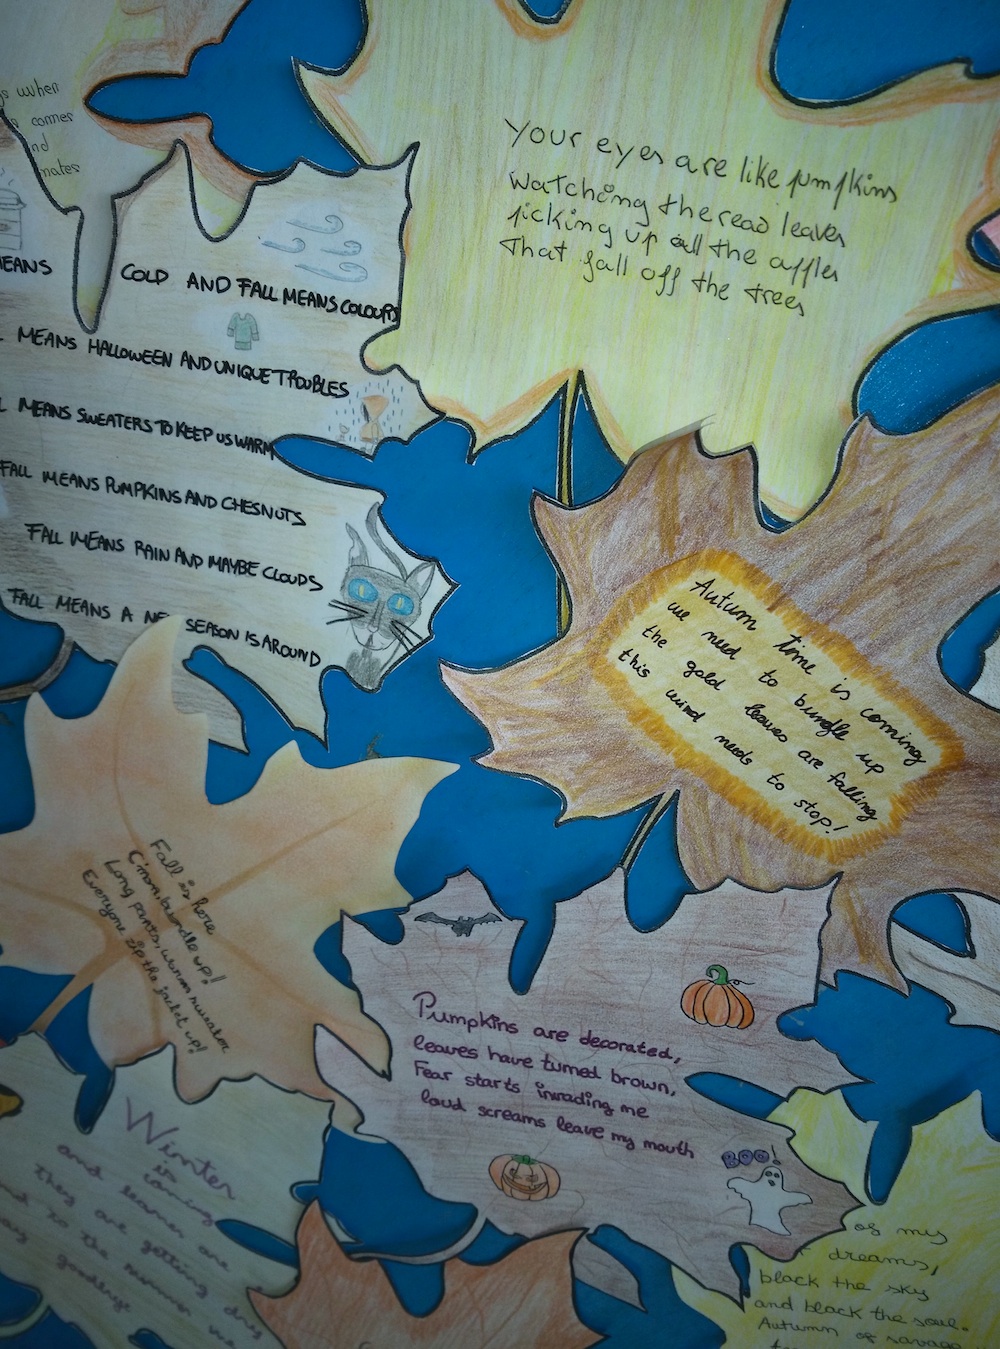 gs when
comes
nd
mates
Your eyes are like pumpkins
Watching the read leaves
picking up all the apples
that fall off the trees
MEANS COLD AND FALL MEANS COLOURS
L MEANS HALLOWEEN AND UNIQUE TROUBLES
L MEANS SWEATERS TO KEEP US WARM
FALL MEANS PUMPKINS AND CHESNUTS
FALL MEANS RAIN AND MAYBE CLOUDS
FALL MEANS A NE SEASON IS AROUND
Autumn time is coming
we need to bungle up
the gold leaves are falling
this wind needs to stop!
Fall is here
C'mon, bundle up!
Long pants, warm sweater
Everyone zip the jacket up!
Pumpkins are decorated,
leaves have turned brown,
Fear starts invading me
loud screams leave my mouth
BOO!
Winter
is
coming
and leaves are
they are getting dry
and so the summer
say goodbye
of my
dreams,
black the sky
and black the soul.
Autumn of savage